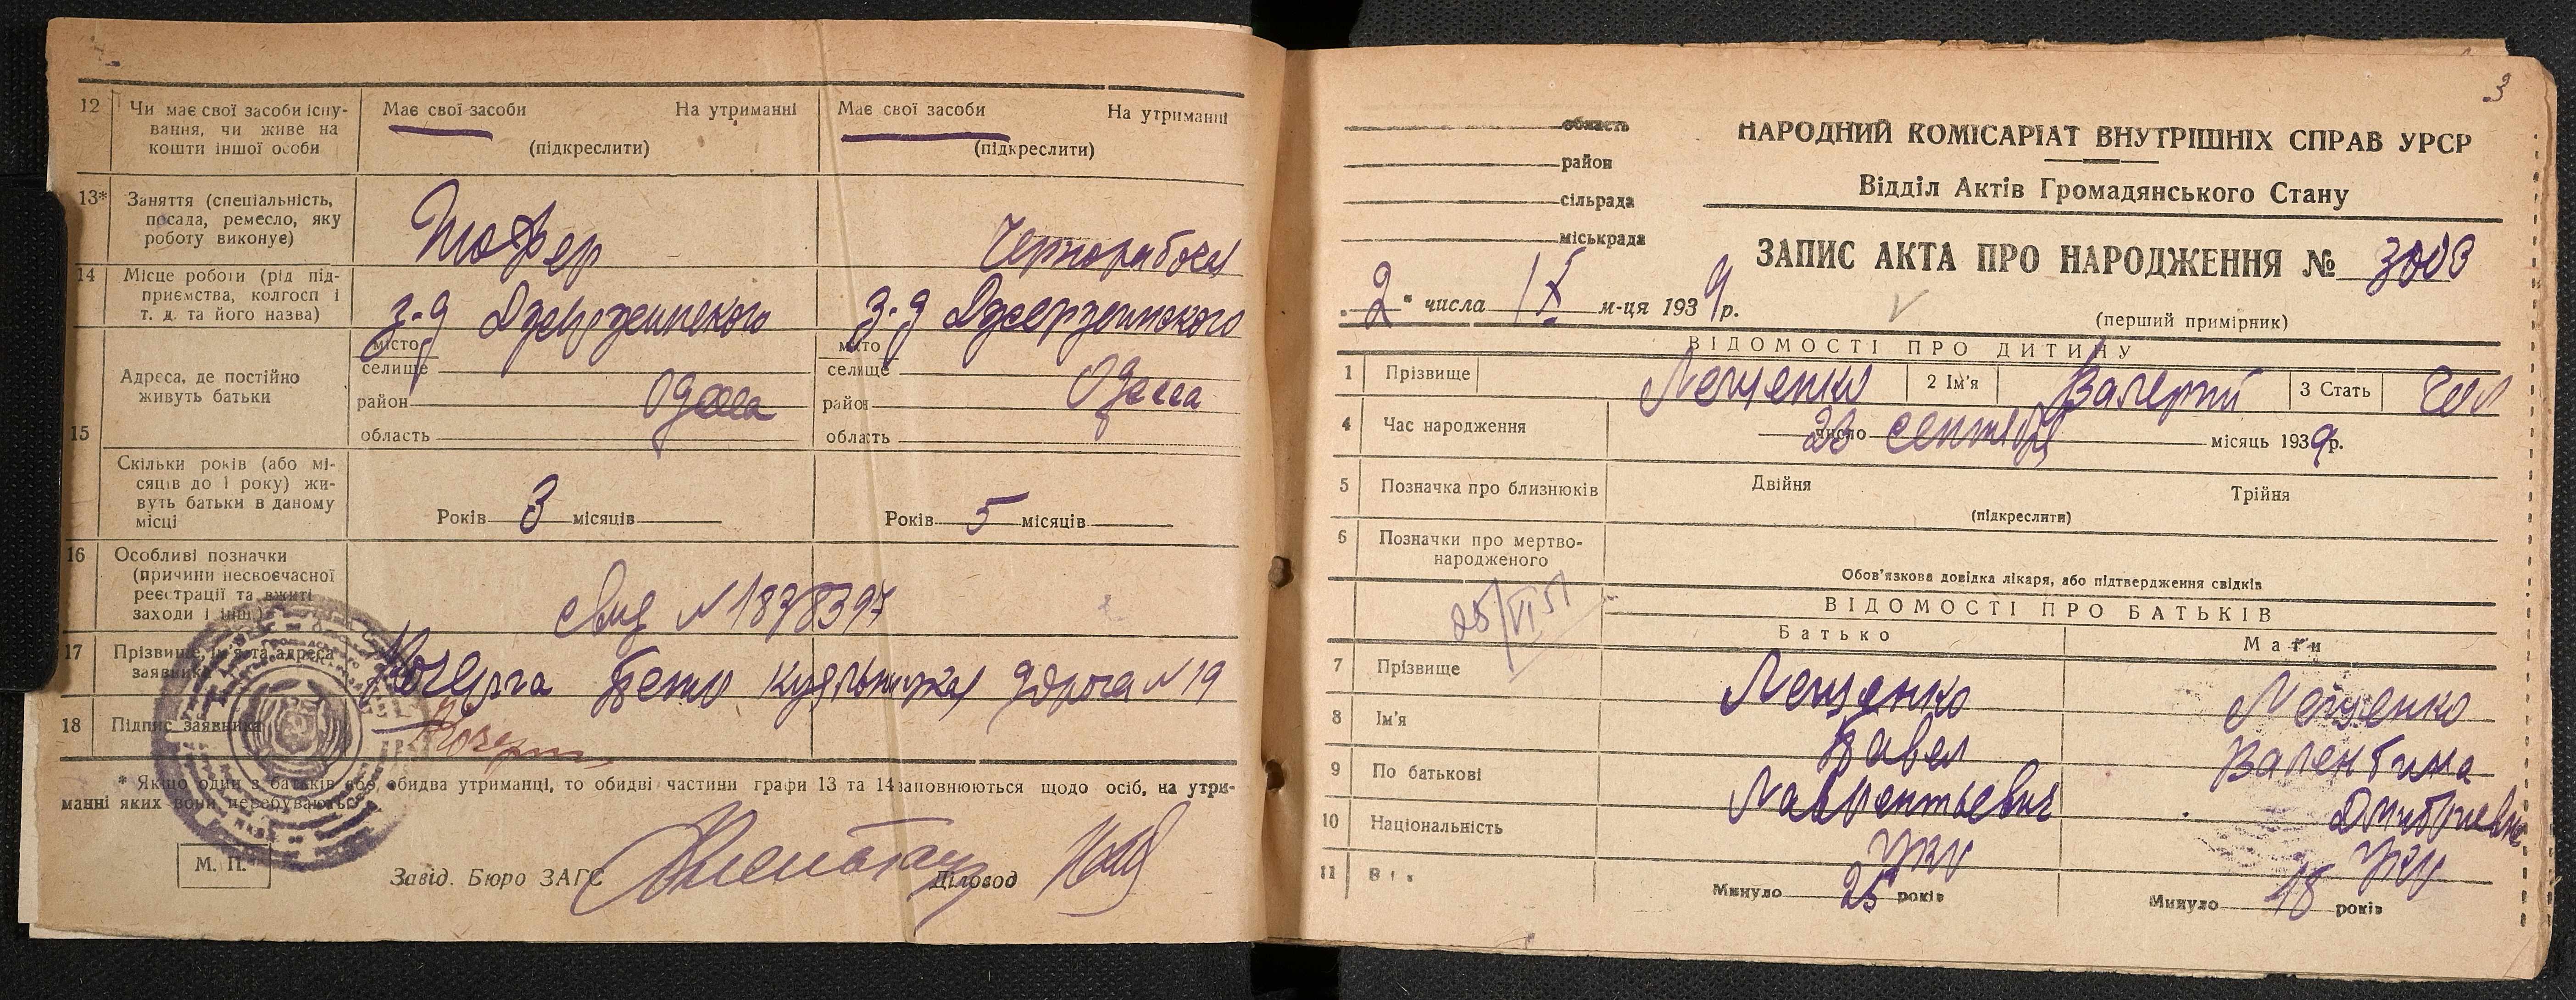 12 Чи має свої засоби існу-
вання, чи живе на
кошти іншої особи
Має свої засоби На утриманні
(підкреслити)
Має свої засоби На утриманні
(підкреслити)
13* Заняття (спеціальність,
посада, ремесло, яку
роботу виконує)
Шофер
Чернорабочая
14 Місце роботи (рід під-
приємства, колгосп і
т. д. та його назва)
з-д Дзержинского
з-д Дзержинского
15 Адреса, де постійно
живуть батьки
місто
селище
район
область
Одесса
місто
селище
район
область
Одесса
Скільки років (або мі-
сяців до 1 року) жи-
вуть батьки в даному
місці
Років 8 місяців
Років 5 місяців
16 Особливі позначки
(причини несвоєчасної
реєстрації та вжиті
заходи і інш.)
свид N 1878397
17 Прізвище, ім'я та адреса
заявника
Кочерга дорога N 19
18 Підпис заявника
* Якщо один з батьків або обидва утриманці, то обидві частини графи 13 та 14 заповнюються щодо осіб, на утри-
манні яких вони перебувають.
М. П.
Завід. Бюро ЗАГС Діловод
3
область
район
сільрада
міськрада
НАРОДНИЙ КОМІСАРІАТ ВНУТРІШНІХ СПРАВ УРСР
Відділ Актів Громадянського Стану
ЗАПИС АКТА ПРО НАРОДЖЕННЯ №
"2" числа м-ця 1939 р.
(перший примірник)
ВІДОМОСТІ ПРО ДИТИНУ
1 Прізвище Лещенко 2 Ім'я Валерий 3 Стать
4 Час народження число сентября місяць 1939 р.
5 Позначка про близнюків Двійня Трійня
(підкреслити)
6 Позначки про мертво-
народженого
Обов'язкова довідка лікаря, або підтвердження свідків
25/VI 51
ВІДОМОСТІ ПРО БАТЬКІВ
Батько Мати
7 Прізвище Лещенко Лещенко
8 Ім'я Павел Валентина
9 По батькові Лаврентьевич Дмитриевна
10 Національність укр укр
11 Вік Минуло 25 років Минуло 18 років